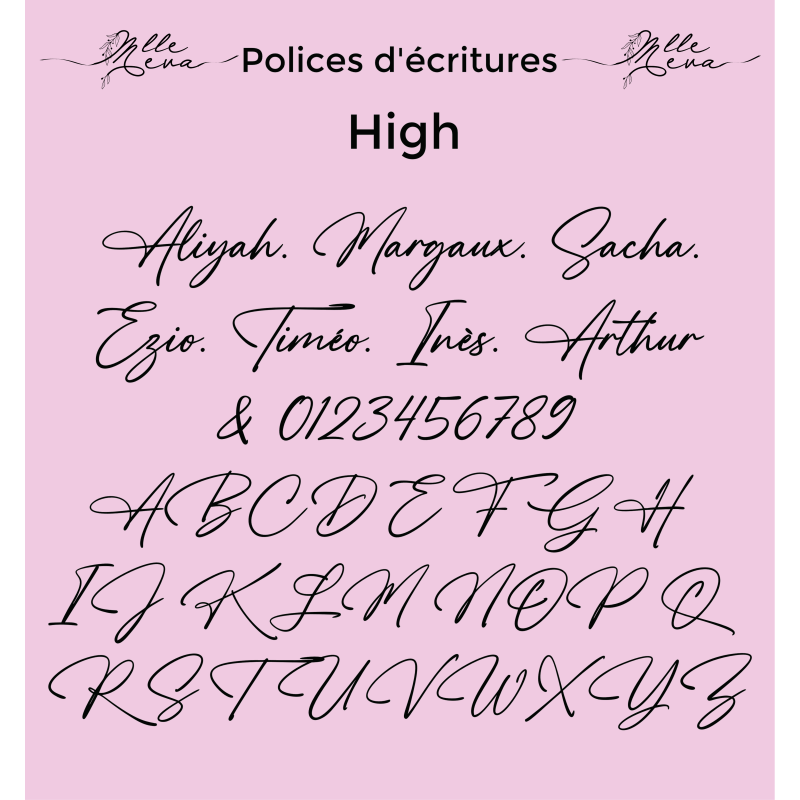 Mlle Meva Polices d'écritures Mlle Meva
High
Aliyah. Margaux. Sacha.
Ezio. Timéo. Inès. Arthur
& 0123456789
A B C D E F G H
I J K L M N O P Q
R S T U V W X Y Z